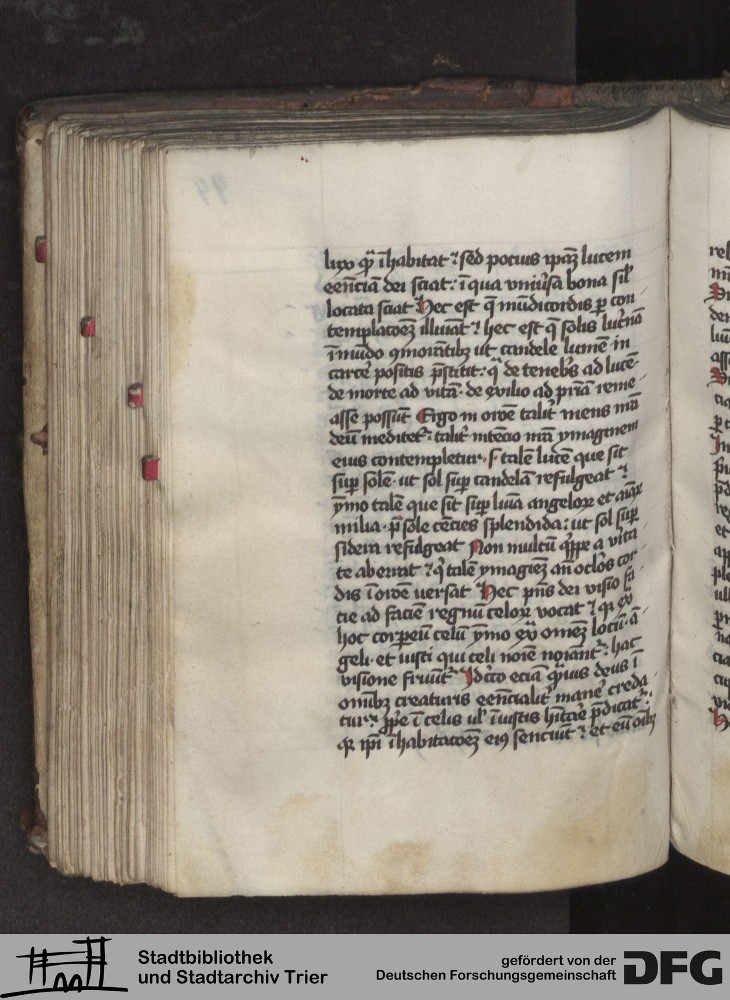 lux qͣ īhabitat ⁊ sed pocius ipāꝫ lucem
eēnciā dei sciat: ī qua vniūsa bona sil̄
locata sciat Hec est q̄ mūdicordis ꝑ con
templacoēꝫ illuīat ⁊ hec est q̄ solis luc̄nā
ī mūdo 9morātibꝫ ut candele lumē in
carce᷑ positis p̄stitit: q̄ de teneb᷑s ad lucē-
de morte ad vitā· de exilio ad pīriā reme
asse possūt Ergo in oroē talit᷑ mens mā
deū meditet᷑: talit᷑ intēcio mā ymaginem
eius contempletur· s· talē lucē que sit
suꝑ solē· ut sol suꝑ candelā refulgeat ⁊
ymo talē que sit suꝑ luīa angeloꝝ et
milia· p̄ sole cēcies splendida: ut sol suꝑ
sidera refulgeat Non multū q̄ppe a vita
te aberrat ⁊ q̄ talē ymagiēꝫ an̄ oclōs cor
dis ī oroē uersat Hec pn̄s dei visio fa
cie ad faciē regnū celoꝝ vocat᷑ ⁊ qꝛ ex
hoc corpeū celū ymo ex omēꝫ locū· ā
geli· et iusti qui celi noīe noīant᷑: hac
visione fruūt᷑ Idcco eciā qͣuis deus ī
omībꝫ creaturis eēncialit᷑ mane᷑ creda
tur: ꝓpe ī celis ul̓ ī iustis hītāe p̄dicat᷑:
qꝛ ipī īhabitacoēꝫ ei9 senciūt ⁊ et eū
Stadtbibliothek
und Stadtarchiv Trier
gefördert von der
Deutschen Forschungsgemeinschaft
DFG